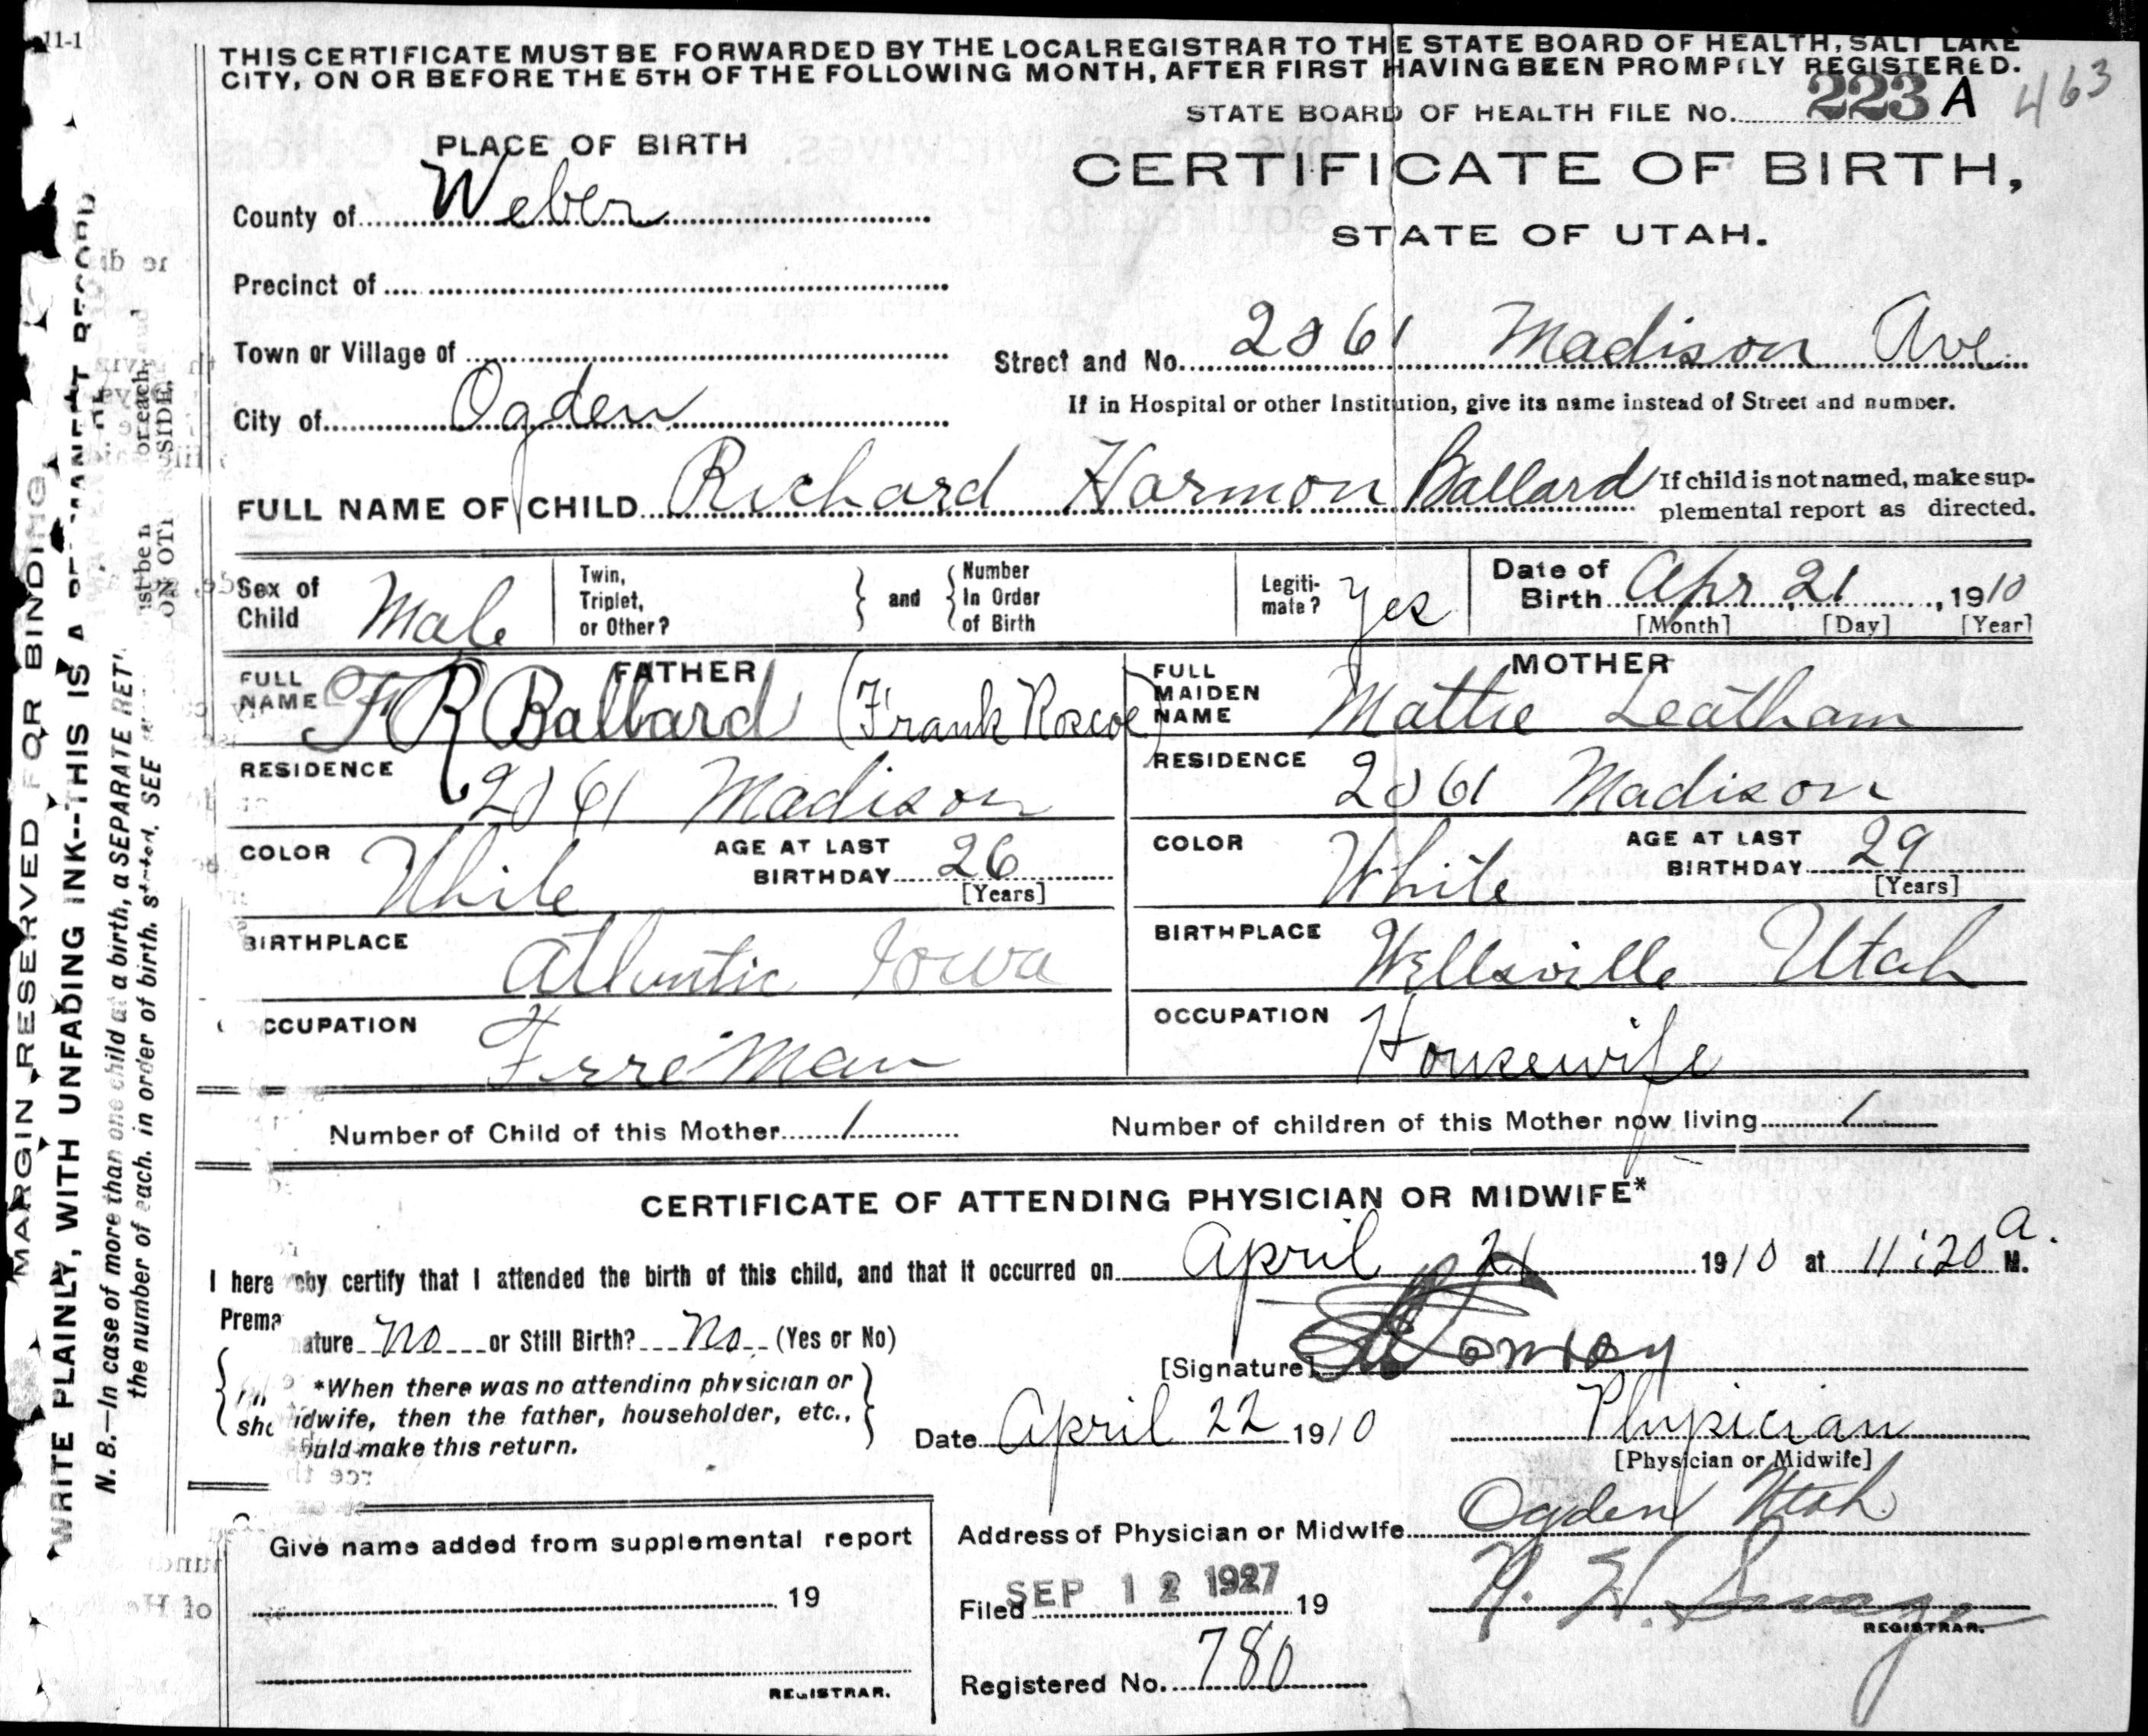 11-1
THIS CERTIFICATE MUST BE FORWARDED BY THE LOCAL REGISTRAR TO THE STATE BOARD OF HEALTH, SALT LAKE
CITY, ON OR BEFORE THE 5TH OF THE FOLLOWING MONTH, AFTER FIRST HAVING BEEN PROMPTLY REGISTERED.
STATE BOARD OF HEALTH FILE No. 223 A 463
PLACE OF BIRTH
CERTIFICATE OF BIRTH,
County of Weber
STATE OF UTAH.
Precinct of
Town or Village of
Street and No. 2061 Madison Ave
City of Ogden
If in Hospital or other Institution, give its name instead of Street and number.
FULL NAME OF CHILD Richard Harmon Ballard
If child is not named, make sup-
plemental report as directed.
Sex of Child Male
Twin, Triplet, or Other?
and
Number In Order of Birth
Legiti-
mate? Yes
Date of Birth Apr 21, 1910
[Month] [Day] [Year]
FATHER
FULL NAME F R Ballard (Frank Roscoe)
MOTHER
FULL MAIDEN NAME Mattie Leatham
RESIDENCE 2061 Madison
RESIDENCE 2061 Madison
COLOR White AGE AT LAST BIRTHDAY 26 [Years]
COLOR White AGE AT LAST BIRTHDAY 29 [Years]
BIRTHPLACE Atlantic Iowa
BIRTHPLACE Wellsville Utah
CCUPATION Fireman
OCCUPATION Housewife
Number of Child of this Mother 1
Number of children of this Mother now living 1
CERTIFICATE OF ATTENDING PHYSICIAN OR MIDWIFE*
I here eby certify that I attended the birth of this child, and that it occurred on April 21 1910 at 11:20 a. M.
Prema ature No or Still Birth? No (Yes or No)
[Signature]
*When there was no attending physician or
idwife, then the father, householder, etc.,
sho ould make this return.
Date April 22 1910
Physician
[Physician or Midwife]
Address of Physician or Midwife Ogden Utah
Give name added from supplemental report
Filed SEP 12 1927 19
19
REGISTRAR.
REGISTRAR.
Registered No. 780
MARGIN RESERVED FOR BINDING
WRITE PLAINLY, WITH UNFADING INK--THIS IS A PERMANENT RECORD
N. B.—In case of more than one child at a birth, a SEPARATE RET
the number of each, in order of birth, stated. SEE